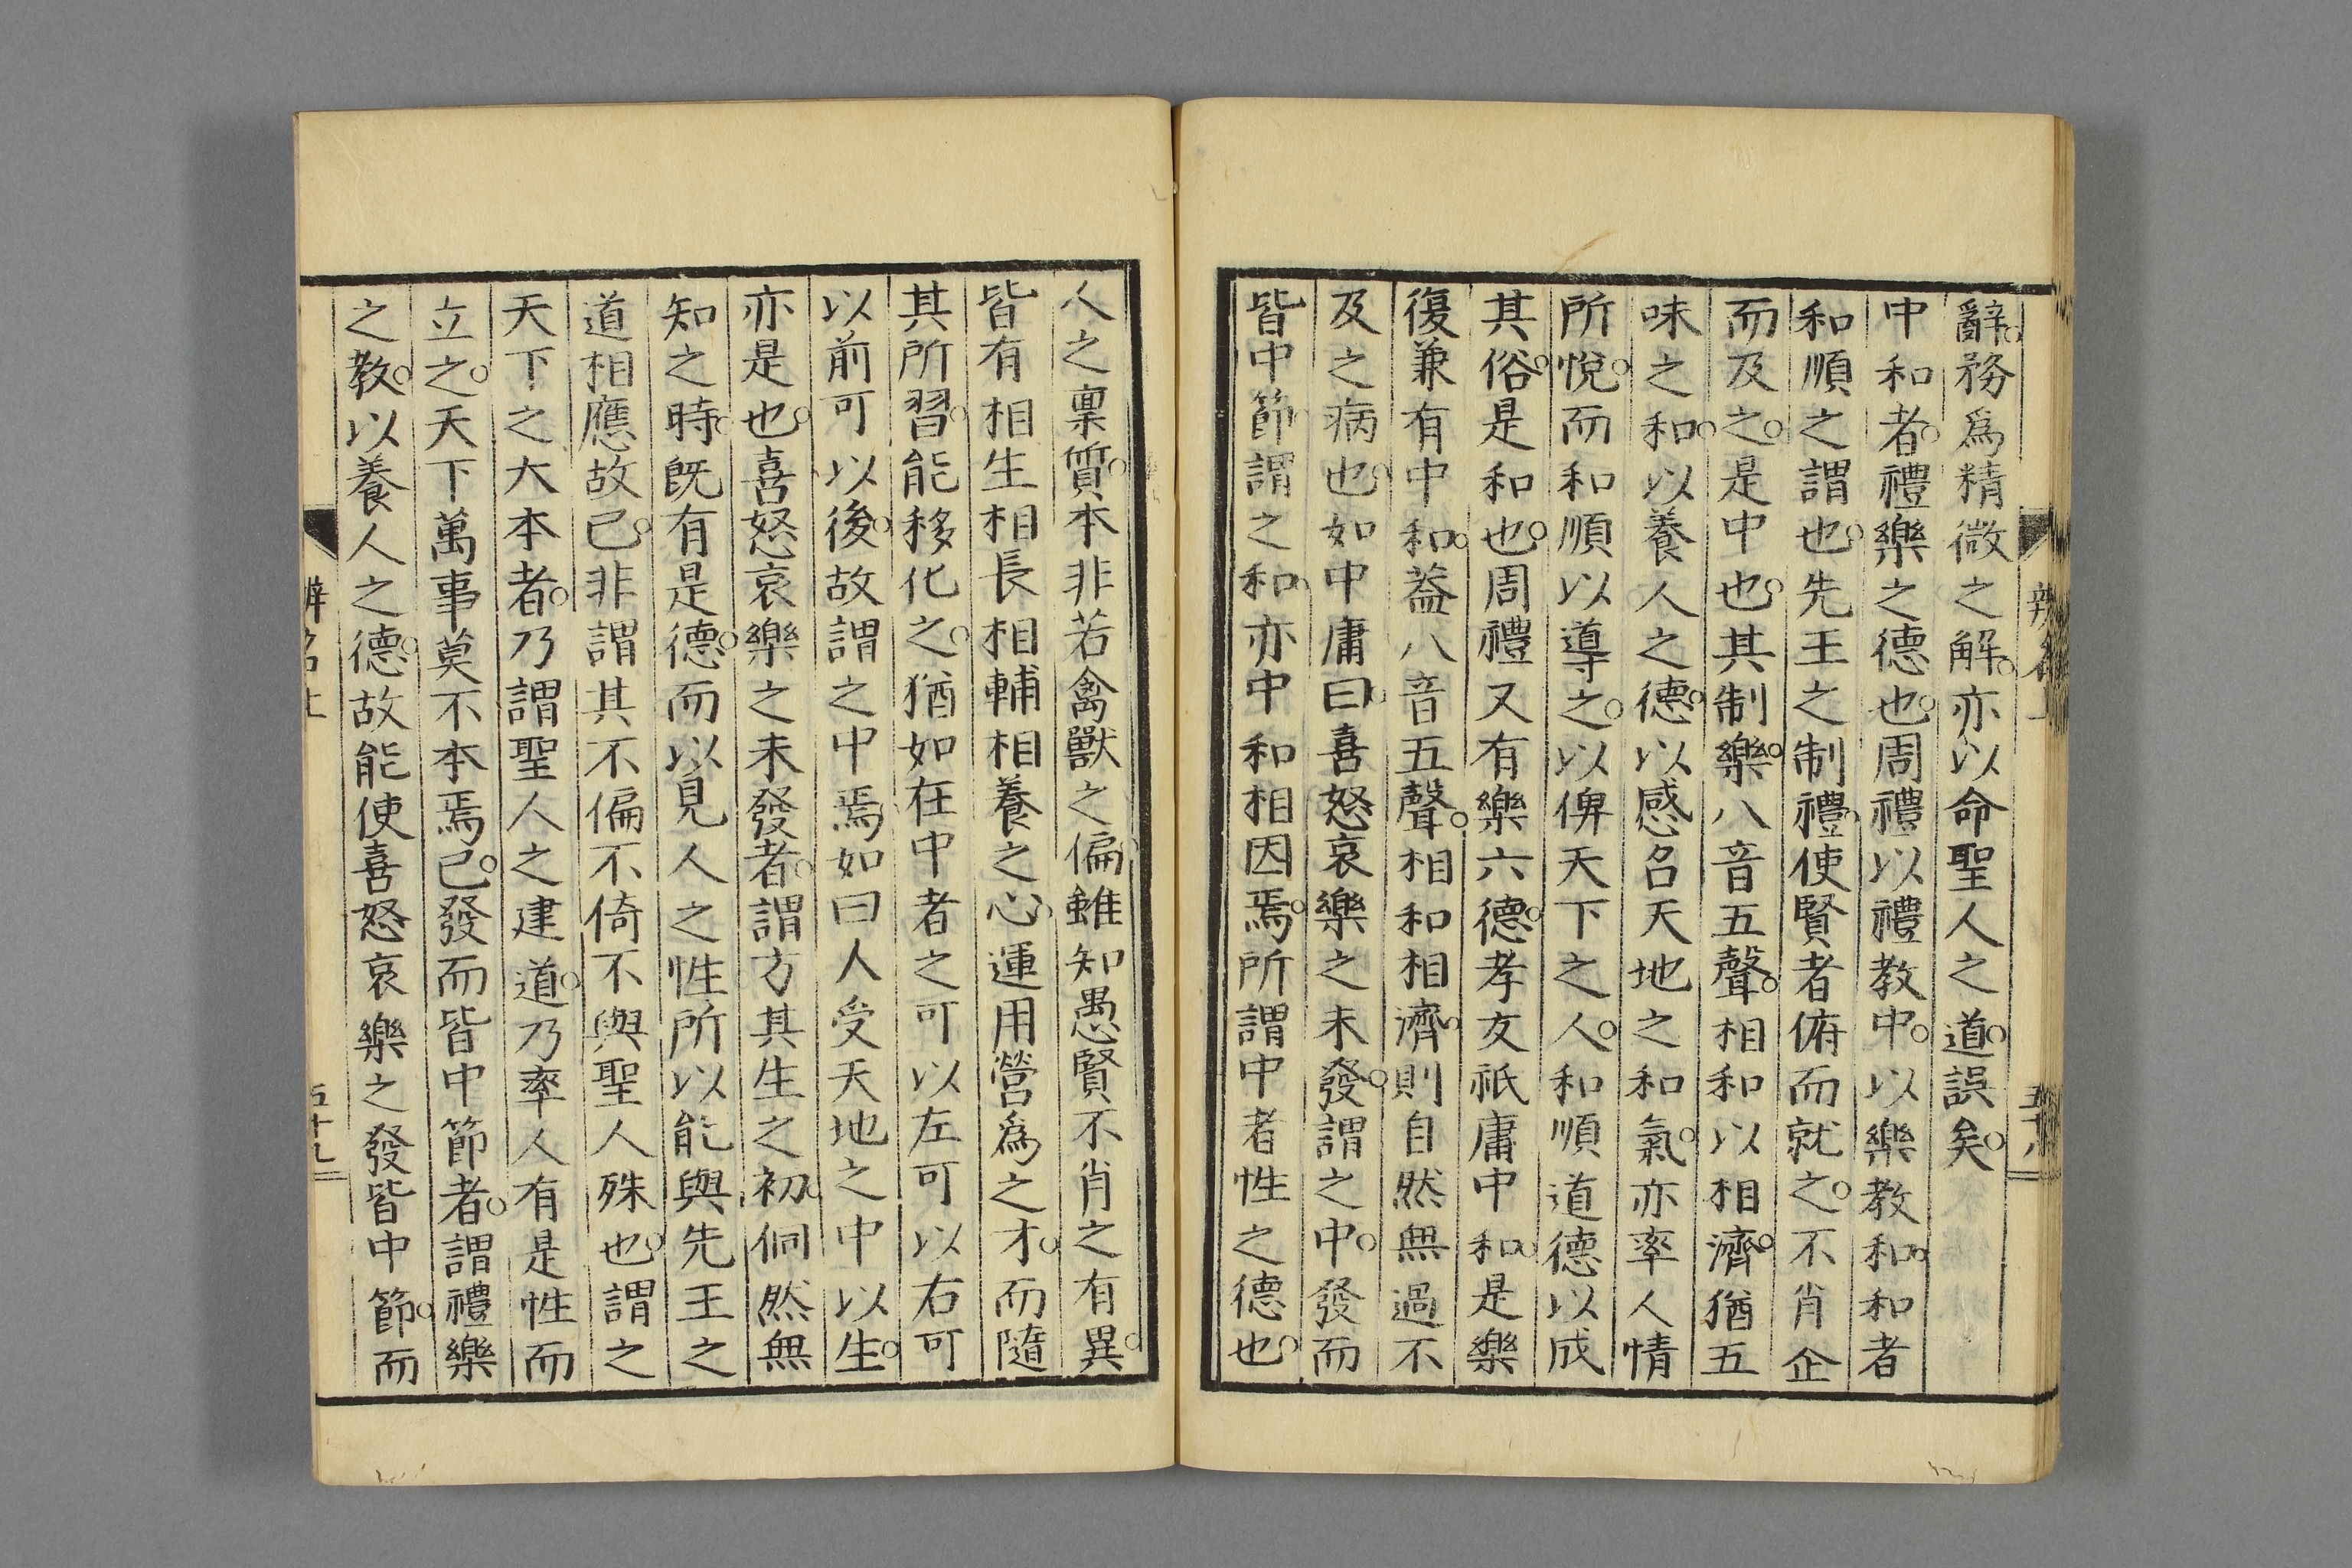 辭務爲精微之解亦以命聖人之道誤矣
中和者禮樂之德也周禮以禮教中以樂教和和者
和順之謂也先王之制禮使賢者俯而就之不肖企
而及之是中也其制樂八音五聲相和以相濟猶五
味之和以養人之德以感召天地之和氣亦率人情
所悅而和順以導之以俾天下之人和順道德以成
其俗是和也周禮又有樂六德孝友祇庸中和是樂
復兼有中和葢八音五聲相和相濟則自然無過不
及之病也如中庸曰喜怒哀樂之未發謂之中發而
皆中節謂之和亦中和相因焉所謂中者性之德也
人之稟質本非若禽獸之偏雖知愚賢不肖之有異
皆有相生相長相輔相養之心運用營爲之才而隨
其所習能移化之猶如在中者之可以左可以右可
以前可以後故謂之中焉如曰人受天地之中以生
亦是也喜怒哀樂之未發者謂方其生之初侗然無
知之時旣有是德而以見人之性所以能與先王之
道相應故已非謂其不偏不倚不與聖人殊也謂之
天下之大本者乃謂聖人之建道乃率人有是性而
立之天下萬事莫不本焉已發而皆中節者謂禮樂
之教以養人之德故能使喜怒哀樂之發皆中節而
辨名上
五十九